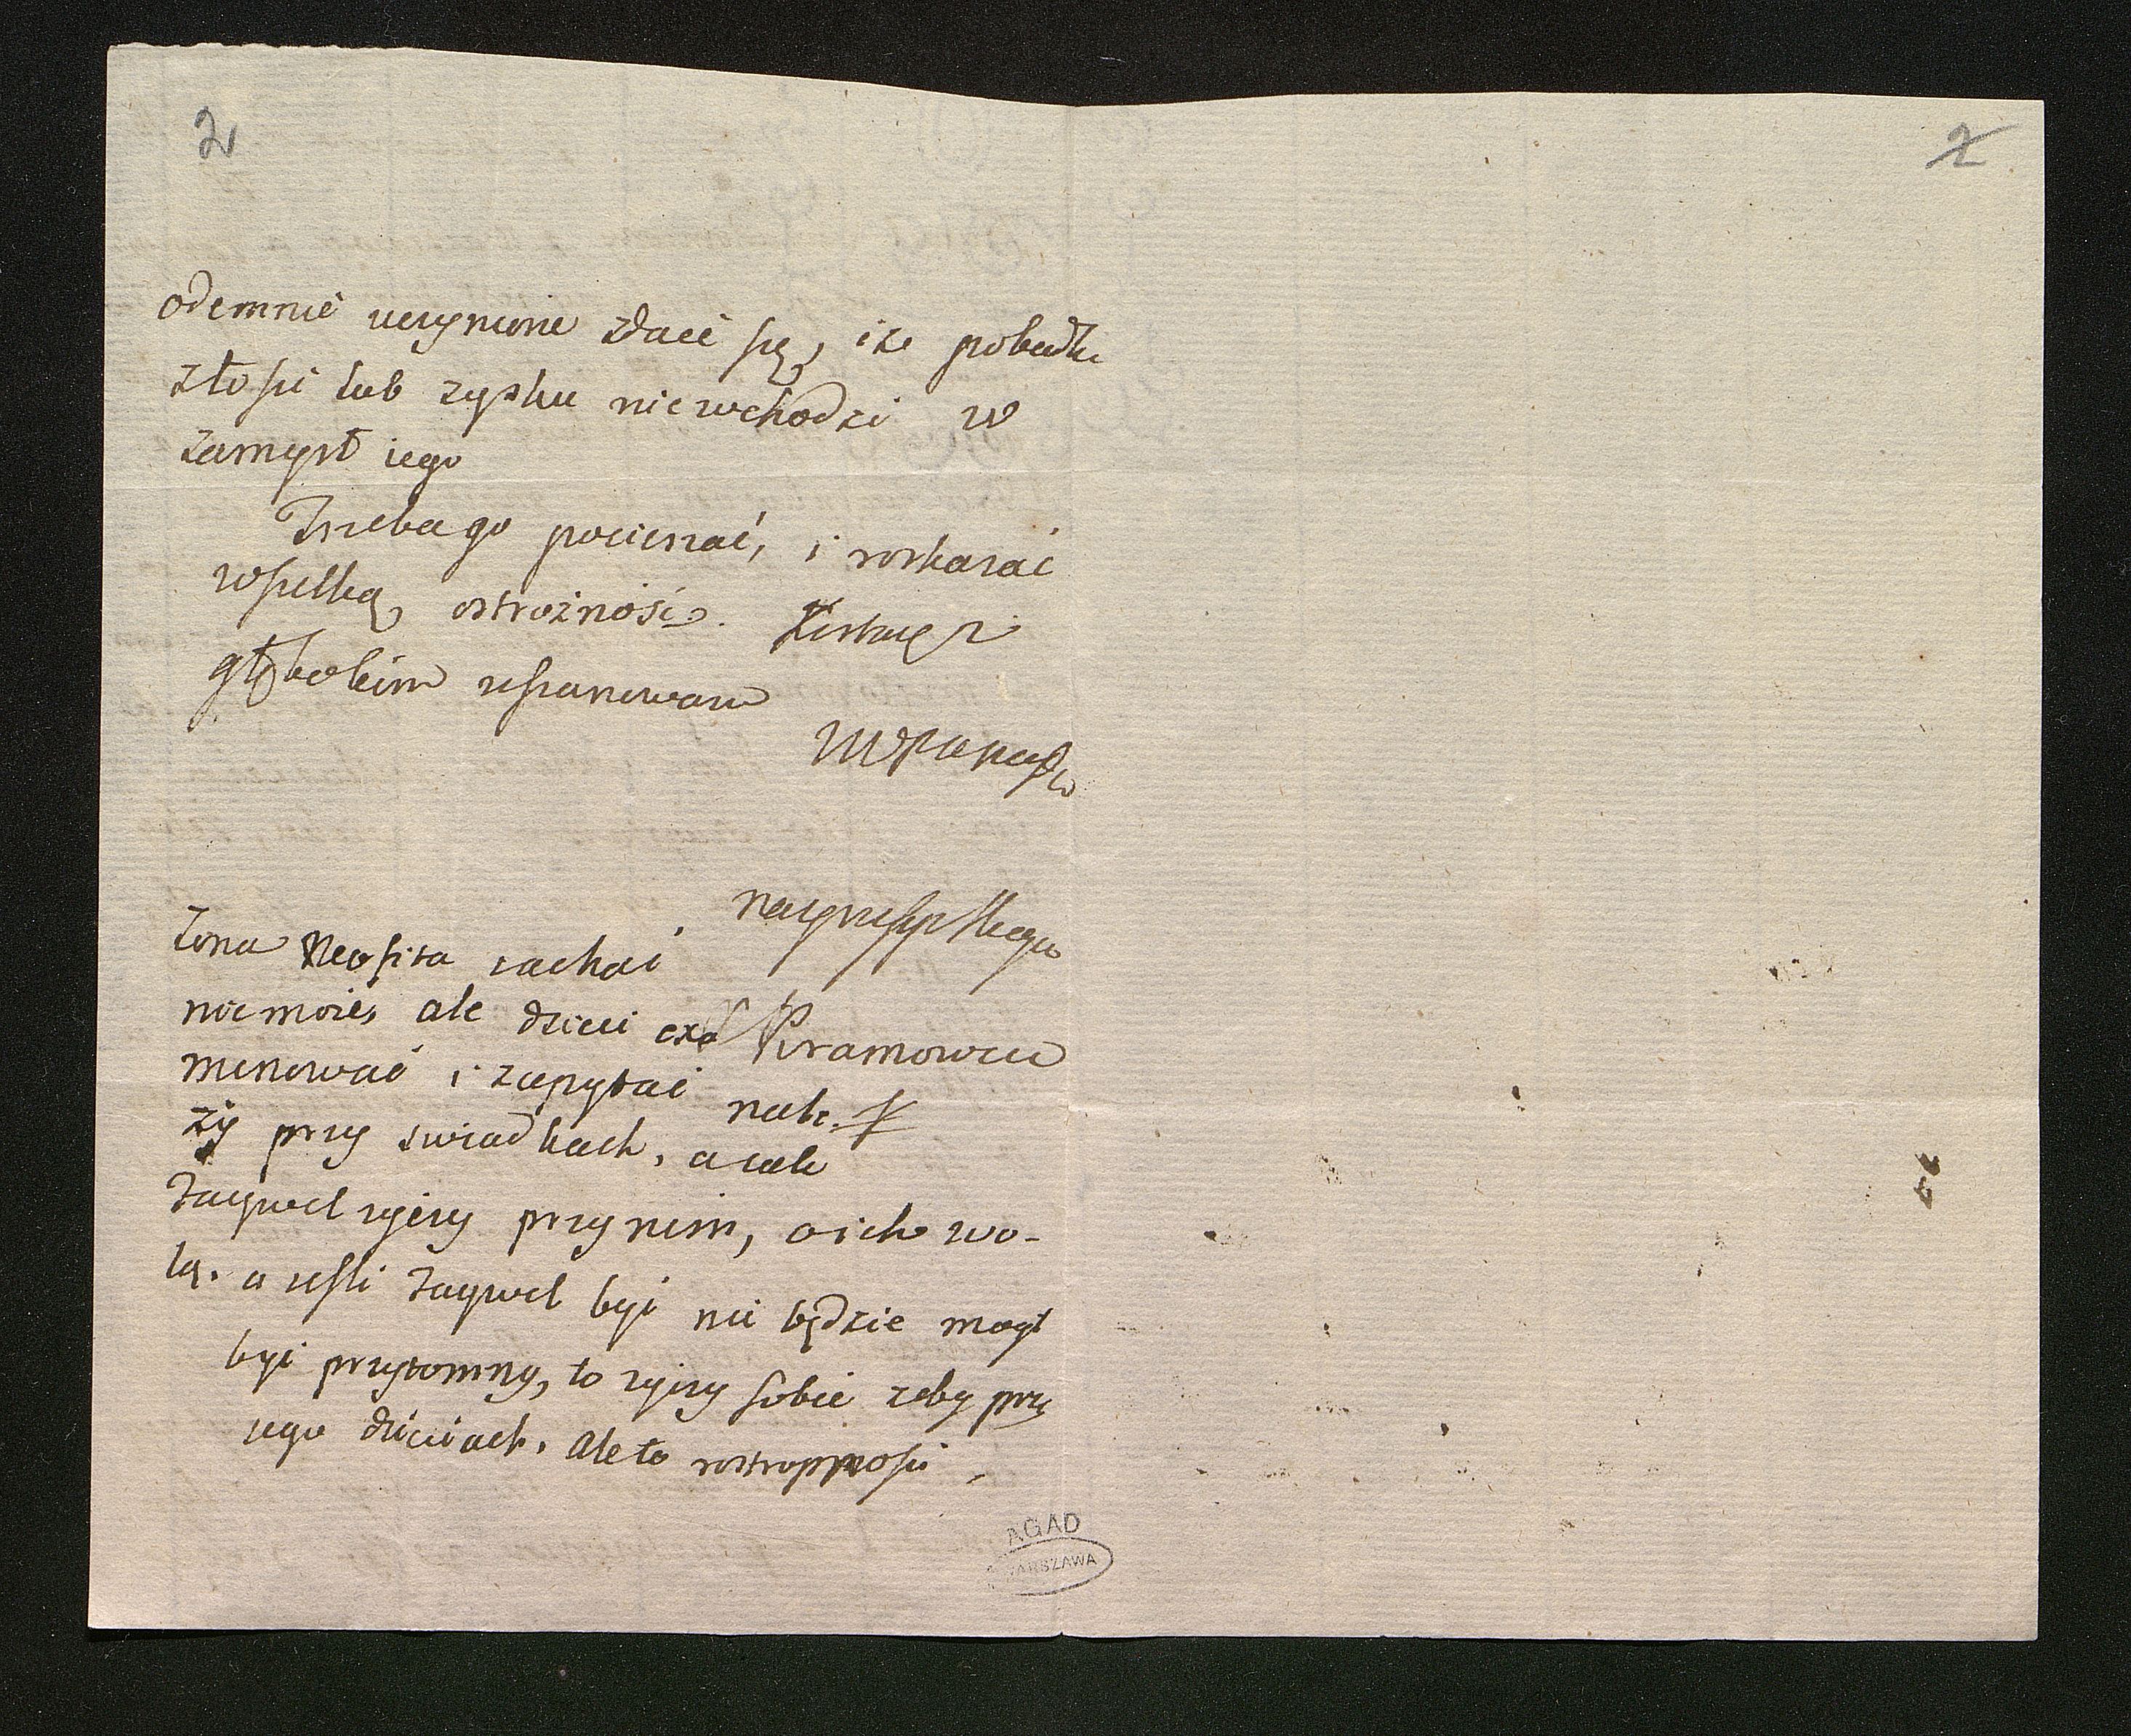 2
2
odemnie uczynione zdaie się, iże pobudka
złości lub zysku nie wchodzi w
zamysł iego
Trzeba go pocieszać, i roskazać
wszelką ostrożność. Zostaię z
głębokim uszanowaniem
WMPana
nayniższym sługą
Żona Neofita iachać
nie może, ale dzieci exa
Piramowicz
minować i zapytać należ
ży przy swiadkach, a cale
Zaywel życzy przy nim, o ich wo-
lą. a iesli Zaywel być nie będzie mogł
być przytomny, to życzy sobie zeby przy
iego dzieciach. Ale to rostropności
AGAD
WARSZAWA